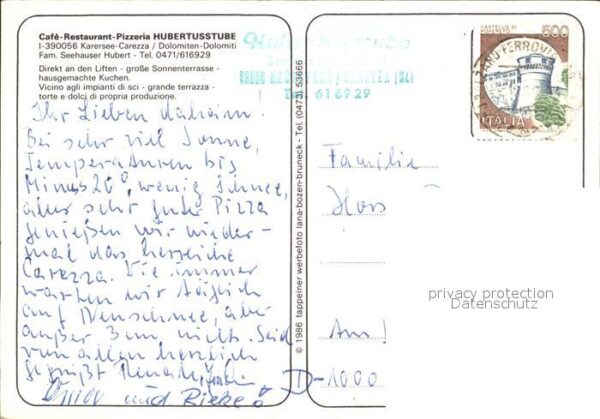 Café-Restaurant-Pizzeria HUBERTUSSTUBE
I-390056 Karersee-Carezza / Dolomiten-Dolomiti
Fam. Seehauser Hubert - Tel. 0471/616929
Direkt an den Liften - große Sonnenterrasse -
hausgemachte Kuchen.
Vicino agli impianti di sci - grande terrazza -
torte e dolci di propria produzione.
Ihr Lieben daheim!
Bei sehr viel Sonne,
Temperaturen bis
Minus 20°, wenig Schnee,
aber sehr guter Pizza
genießen wir wieder-
mal das herrliche
Carezza. Wie immer
warten wir täglich
auf Neuschnee, aber
außer 3cm nichts. Seid
von allen herzlich
gegrüßt Renate
und Rieke
© 1986 tappeiner werbefoto lana-bozen-bruneck - Tel. (0473) 53666
Hubertusstube
CAREZZA (BZ)
Tel. 616929
CASTELLO DI
ROVERETO
500
ITALIA
Familie
Hors
Am
D-1000
privacy protection
Datenschutz